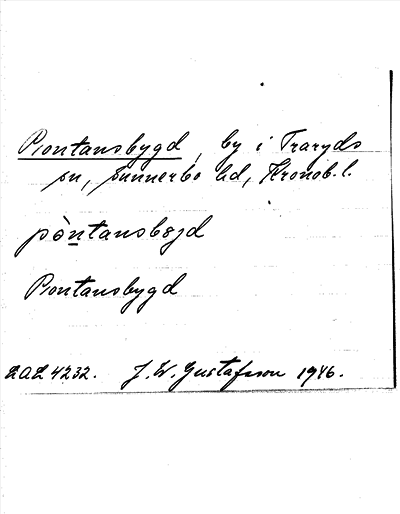 Pontansbygd, by i Traryds
sn, Sunnerbo hd, Kronob. l.
pòntansbygd
Pontansbygd
LAL 4232. J. W. Gustafsson 1946.